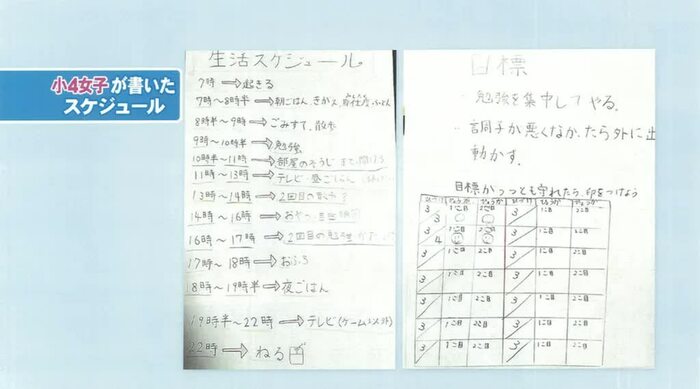 小4女子が書いた
スケジュール
生活スケジュール
7時→起きる
7時〜8時半→朝ごはん、きがえ、
8時半〜9時→ごみすて、散歩
9時〜10時半→勉強
10時半〜11時→部屋のそうじ
11時〜13時→テレビ・昼ごはん
13時〜14時→2回目の
14時〜16時→おやつ・自由時間
16時〜17時→2回目の勉強
17時〜18時→おふろ
18時〜19時半→夜ごはん
19時半〜22時→テレビ(ゲーム
22時→ねる
目標
・勉強を集中してやる。
・調子が悪くなったら外に出
動かす。
目標が1つでも守れたら、印をつけよう
ひづけ もくひょう もくひょう ひづけ もくひょう もくひょう
3/3 1こ目 2こ目 3/ 1こ目 2こ目
3/4 1こ目 2こ目 3/ 1こ目 2こ目
3/ 1こ目 2こ目 3/ 1こ目 2こ目
3/ 1こ目 2こ目 3/ 1こ目 2こ目
3/ 1こ目 2こ目 3/ 1こ目 2こ目
3/ 1こ目 2こ目 3/ 1こ目 2こ目
3/ 1こ目 2こ目 3/ 1こ目 2こ目